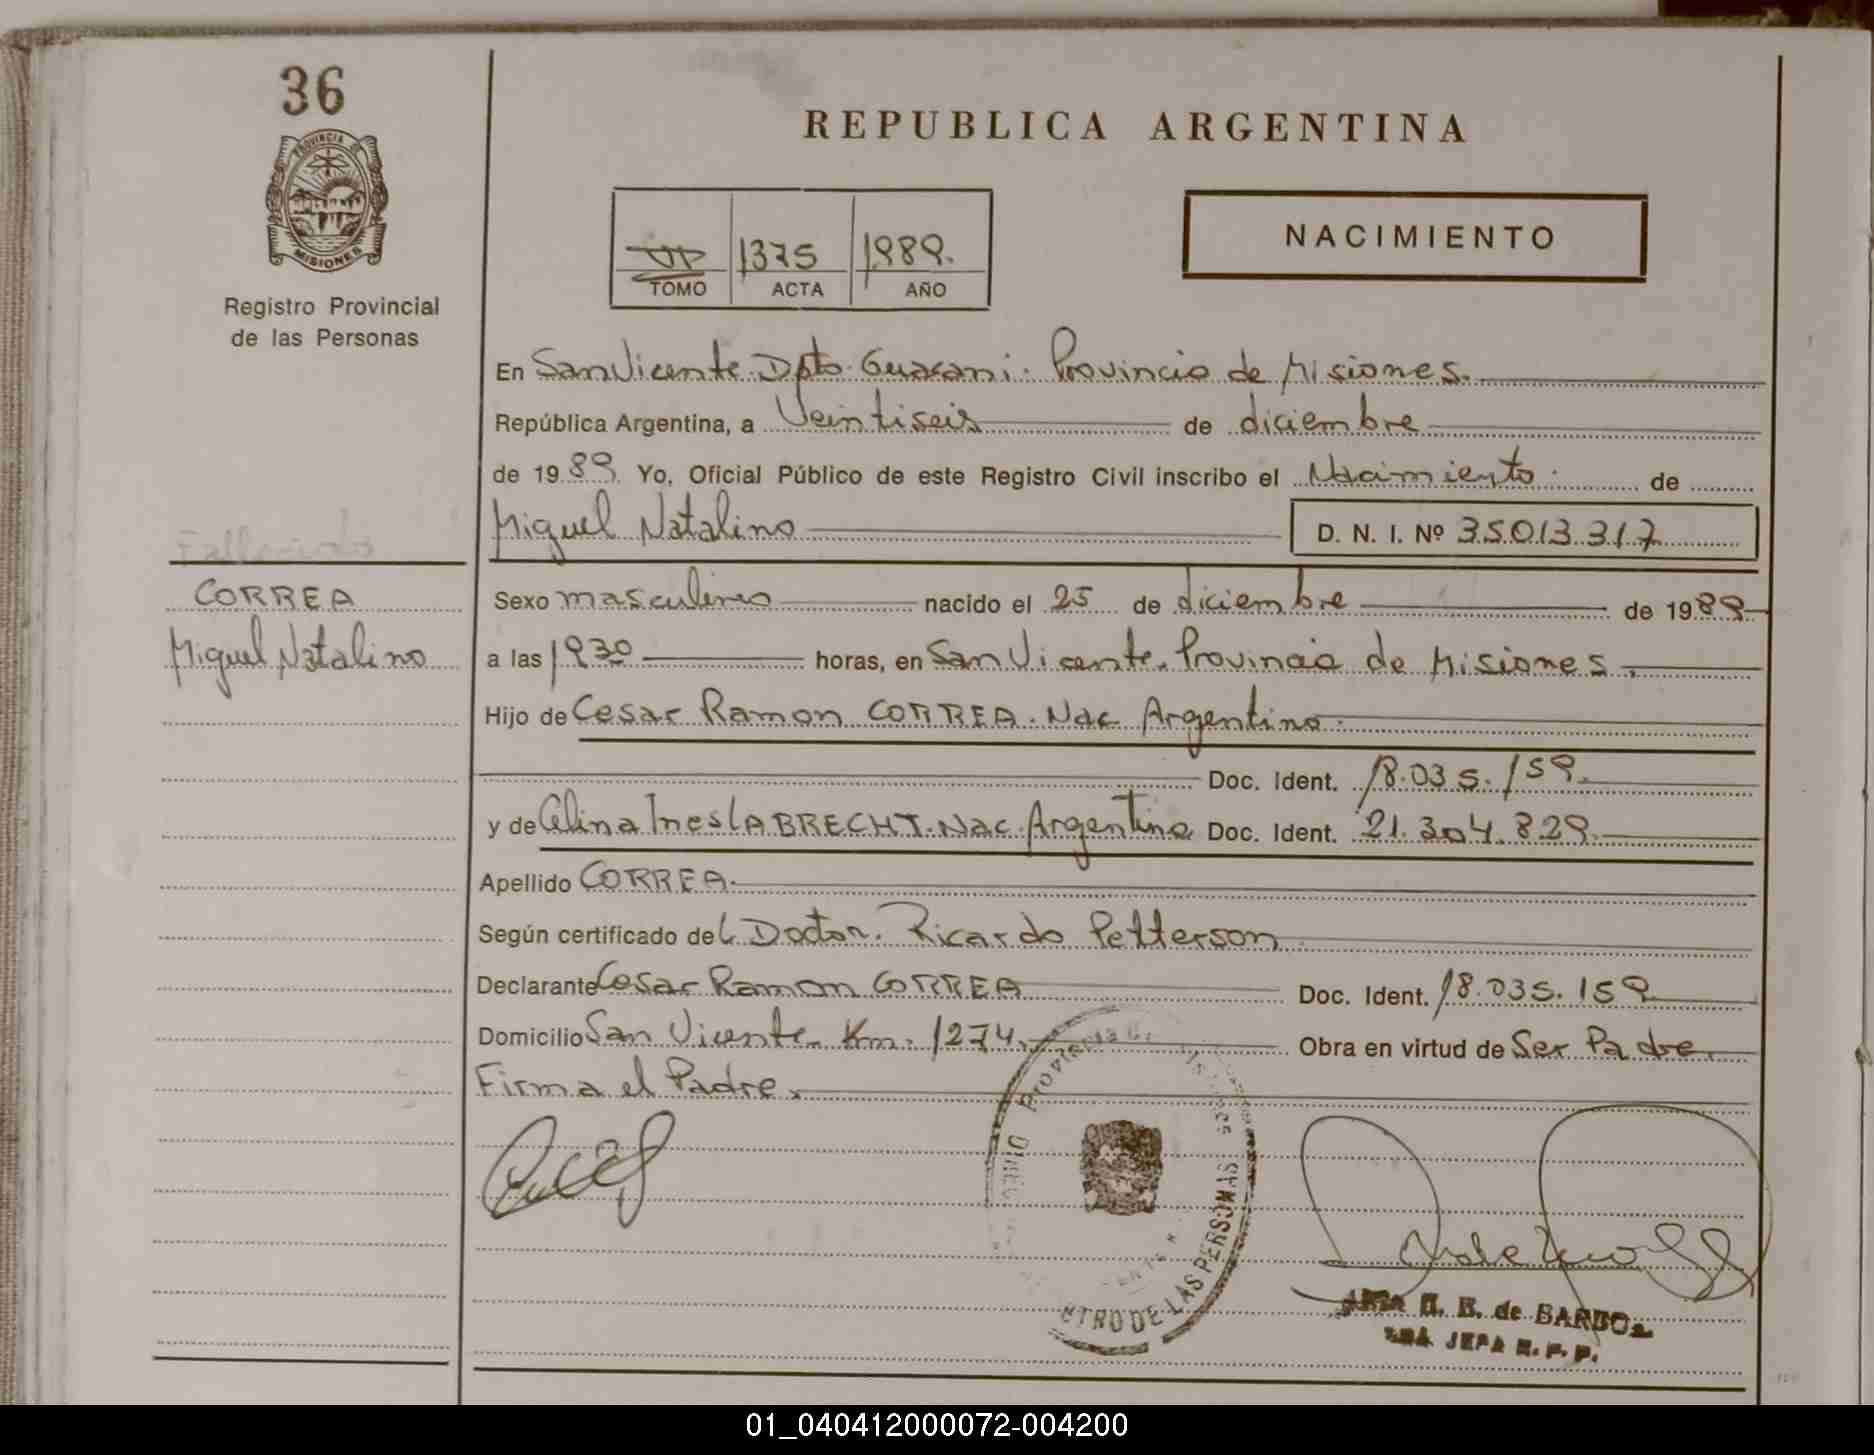 36
PROVINCIA DE
MISIONES
Registro Provincial
de las Personas
REPUBLICA ARGENTINA
1375 1989.
TOMO ACTA AÑO
NACIMIENTO
En San Vicente Dpto. Guarani. Provincia de Misiones.
República Argentina, a Veintiseis de diciembre
de 1989 Yo, Oficial Público de este Registro Civil inscribo el Nacimiento de
Miguel Natalino D. N. I. Nº 35.013.317
Fallecido
CORREA
Miguel Natalino
Sexo masculino nacido el 25 de diciembre de 1989
a las 1930 horas, en San Vicente. Provincia de Misiones.
Hijo de Cesar Ramon CORREA. Nac. Argentino.
Doc. Ident. 18.035.159.
y de Celina Ines LABRECHT. Nac. Argentina Doc. Ident. 21.304.829.
Apellido CORREA.
Según certificado del Doctor. Ricardo Petterson
Declarante Cesar Ramon CORREA Doc. Ident. 18.035.159
Domicilio San Vicente. Km. 1274. Obra en virtud de Ser Padre.
Firma el Padre.
DE LAS PERSONAS
H. B. de BARBO
JEFA R. P. P.
01_040412000072-004200